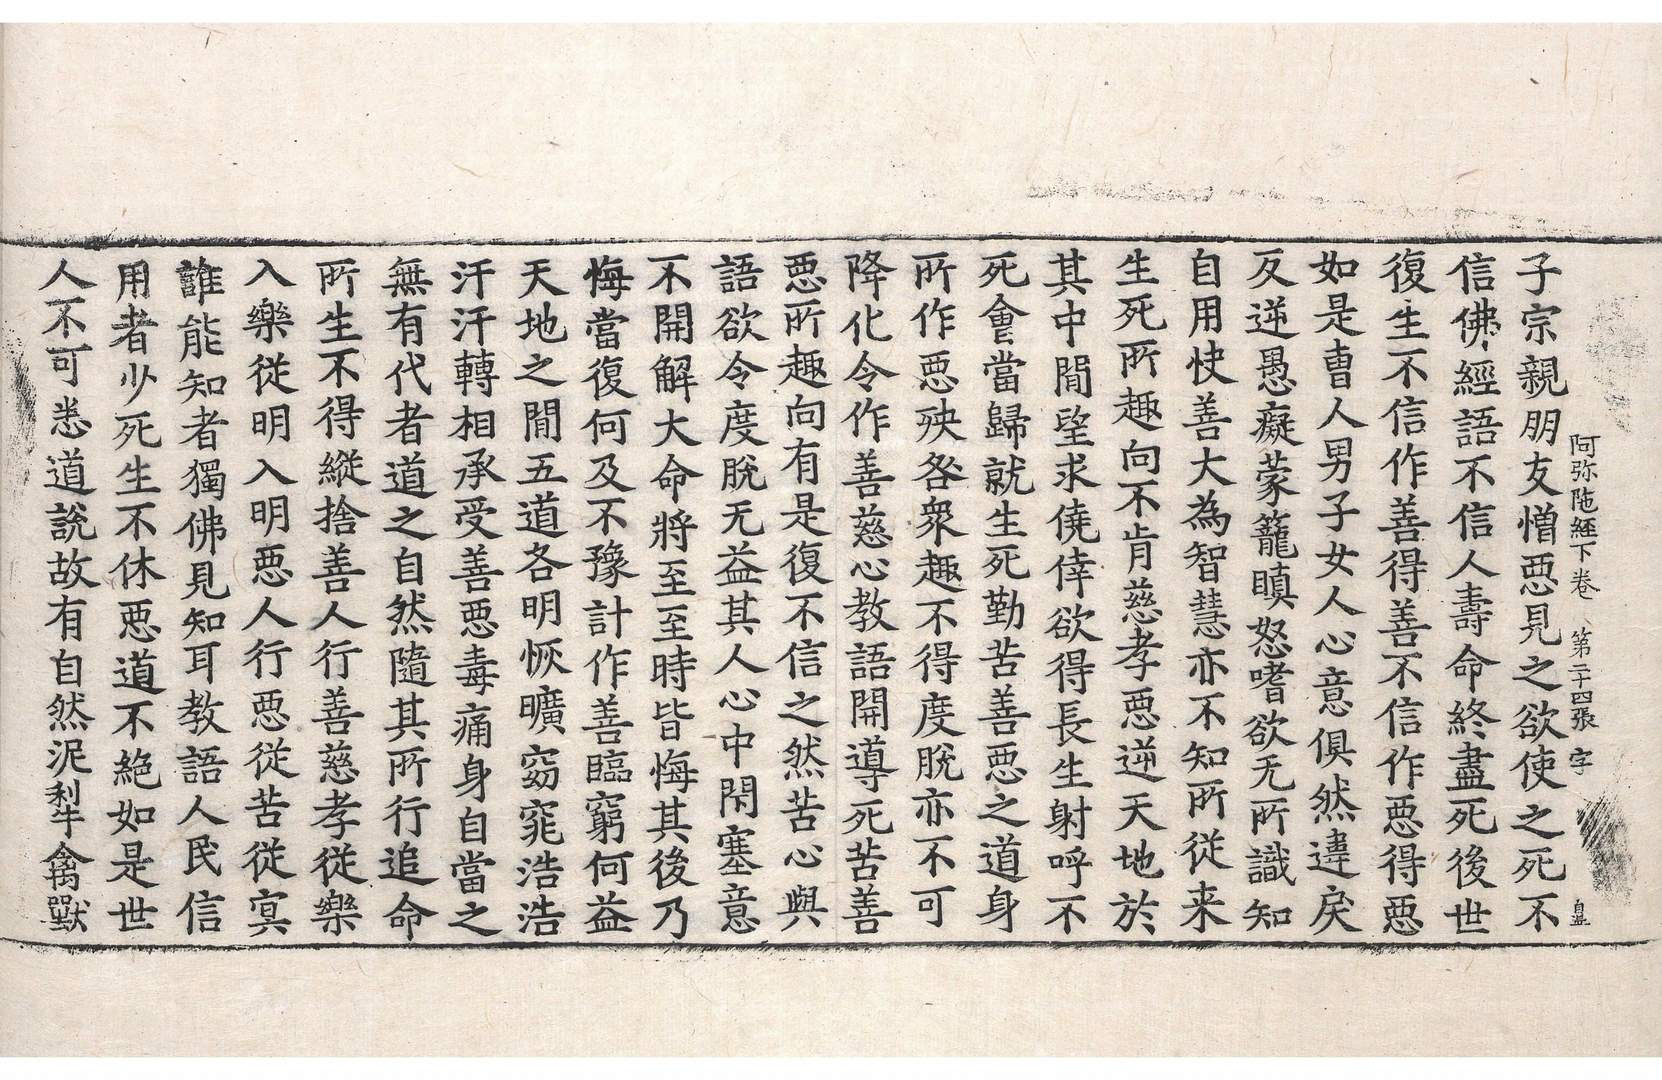 阿弥陁經下卷 第二十四張 字
子宗親朋友憎惡見之欲使之死不
信佛經語不信人壽命終盡死後世
復生不信作善得善不信作惡得惡
如是曺人男子女人心意俱然違戾
反逆愚癡蒙籠瞋怒嗜欲无所識知
自用快善大為智慧亦不知所從来
生死所趣向不肯慈孝惡逆天地於
其中間望求僥倖欲得長生射呼不
死會當歸就生死勤苦善惡之道身
所作惡殃咎衆趣不得度脫亦不可
降化令作善慈心教語開導死苦善
惡所趣向有是復不信之然苦心與
語欲令度脫无益其人心中閇塞意
不開解大命將至至時皆悔其後乃
悔當復何及不豫計作善臨窮何益
天地之間五道各明恢曠窈窕浩浩
汗汗轉相承受善惡毒痛身自當之
無有代者道之自然隨其所行追命
所生不得縱捨善人行善慈孝從樂
入樂從明入明惡人行惡從苦從冥
誰能知者獨佛見知耳教語人民信
用者少死生不休惡道不絕如是世
人不可悉道說故有自然泥犁禽獸